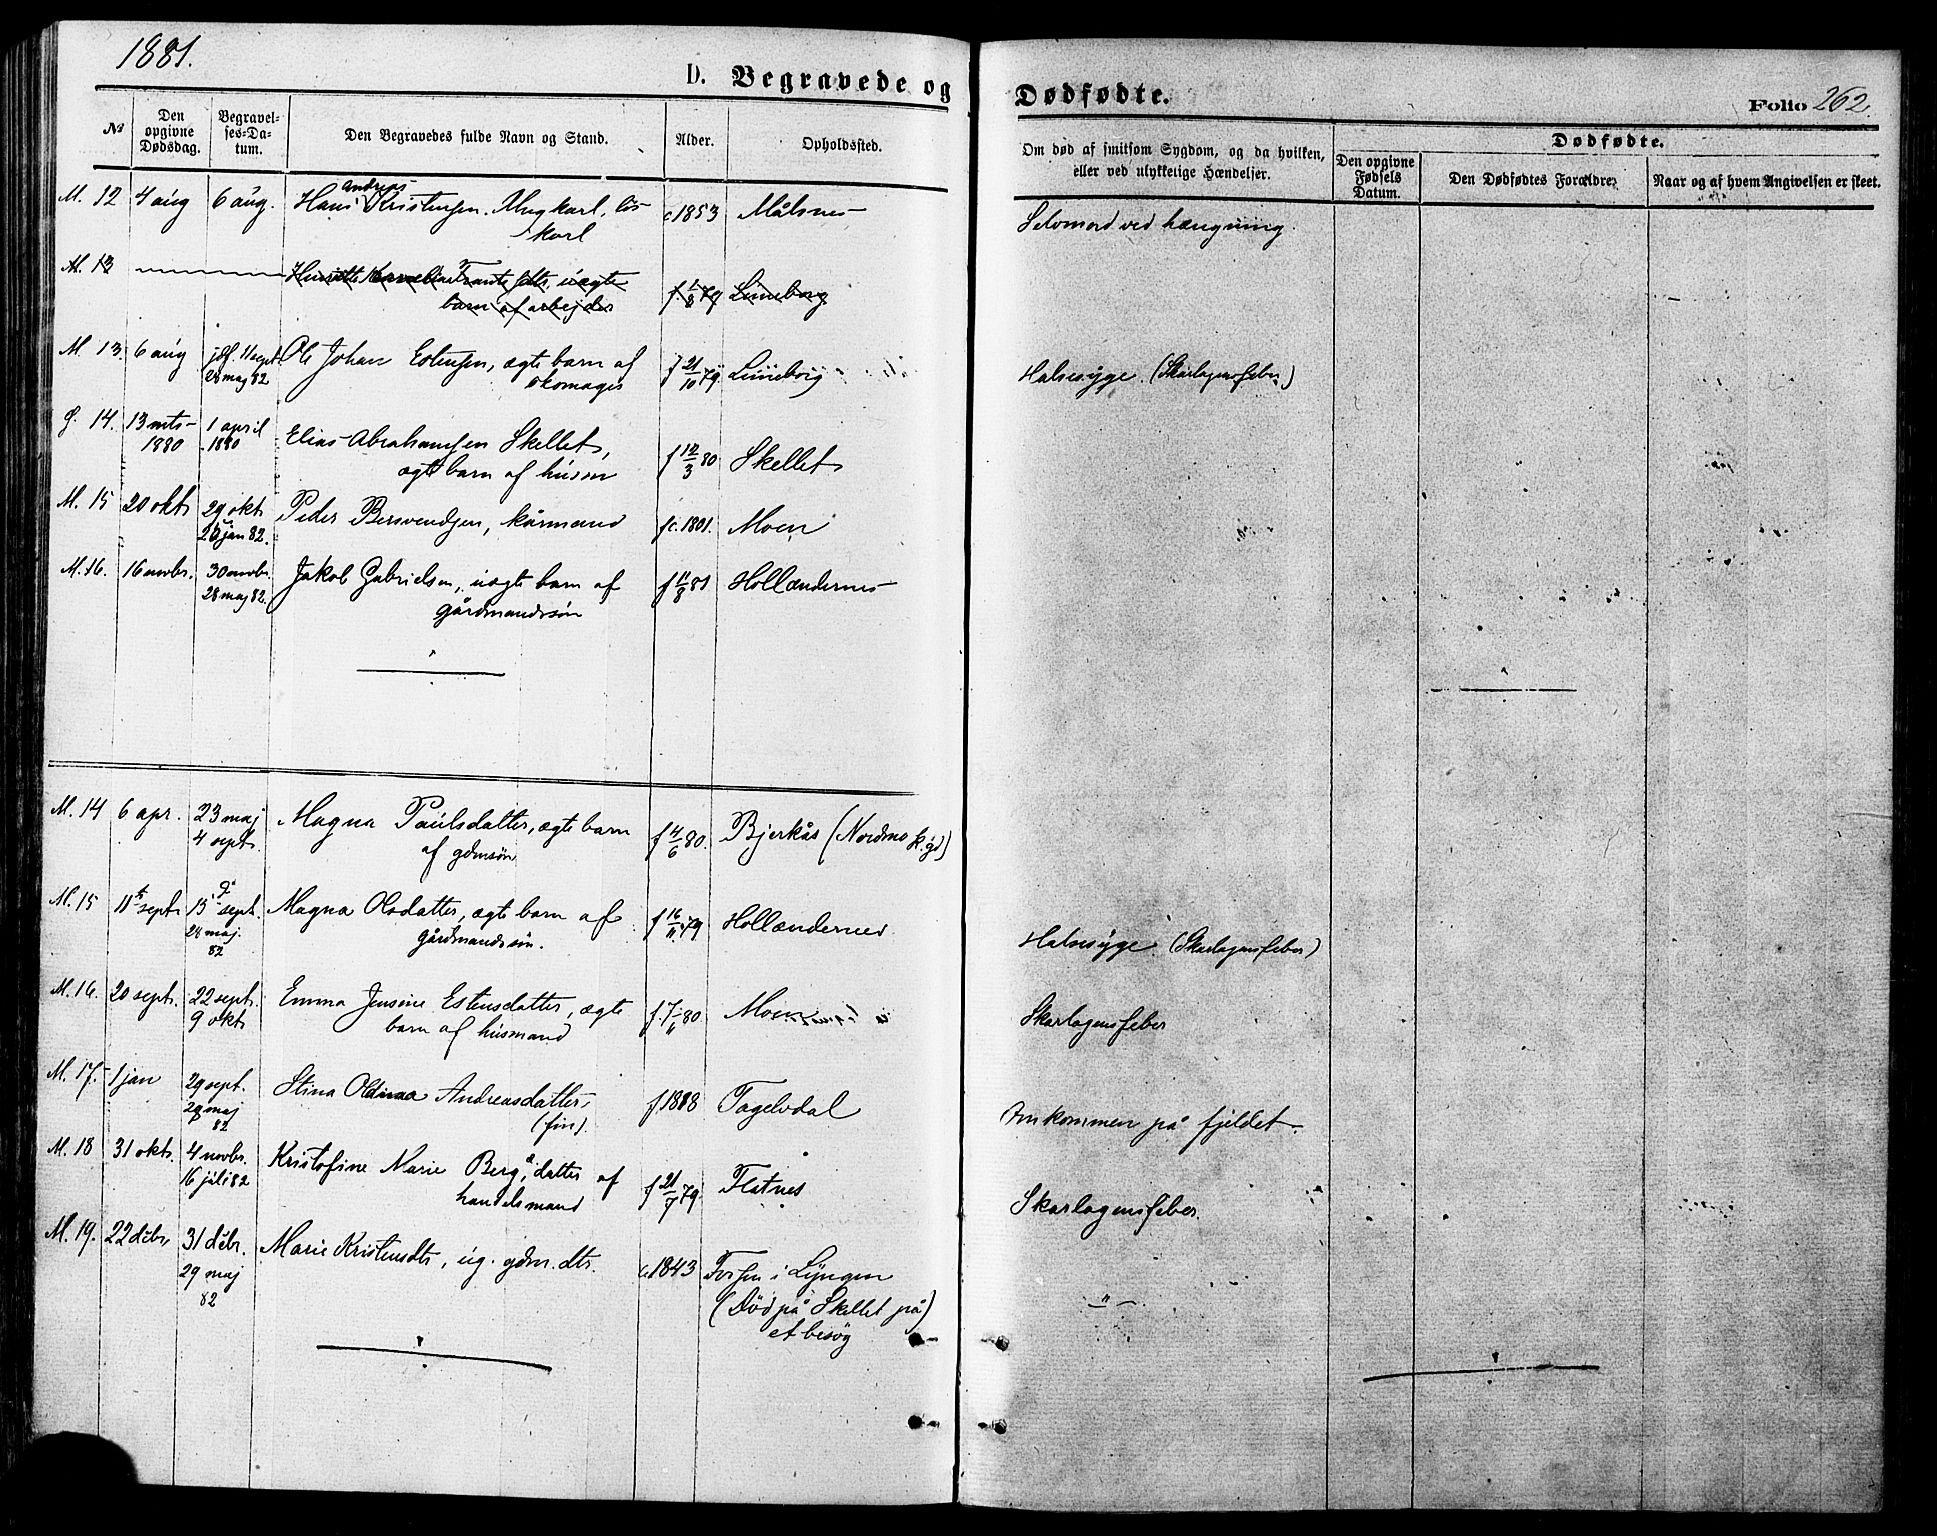 1881.
D. Begravede og Dødfødte.
Folio 262.
№
Den opgivne Dødsdag.
Begravelses-Datum.
Den Begravedes fulde Navn og Stand.
Alder.
Opholdssted.
Om død af smitsom Sygdom, og da hvilken, eller ved ulykkelige Hændelser.
Dødfødte.
Den opgivne Fødsels Datum.
Den Dødfødtes Forældre.
Naar og af hvem Angivelsen er skeet.
M. 12 4 aug 6 aug. Hans Andreas Kristensen. Ungkarl, løskarl c 1853 Målsnes Selvmord ved hængning.
M. 13 barn af arbejder f. 1/8 79 Lüneborg
M. 13. 6 aug jdf. 11 sept. Ole Johan Estensen, ægte barn af f 21/10 79 Lüneborg Halsesyge. (Skarlagensfeber)
28 maj 82 skomager
G. 14. 13 mts 1 april Elias Abrahamsen Skellet, f 12/3 80 Skellet
1880 1880 ægte barn af husm
M. 15 20 okt 29 okt Peder Bersvendsen, kårmand fc. 1801. Moen
jan 82.
M. 16. 16 novbr. 30 novbr. Jakob Gabrielsen, uægte barn af f 11/8 81 Hollændernes
28 maj 82. gårdmandssøn
M. 14 6 apr. 23 maj Magna Paulsdatter, ægte barn f 4/6 80. Bjerkås (Nordmo k.gd)
4 sept. af gdmsøn
M. 15 11te sept 15de sept. Magna Olsdatter, ægte barn af f 16/11 79 Hollændernes Halsesyge. (Skarlagensfeber)
28 maj. gårdmandssøn.
82
M. 16. 20 sept. 22 sept. Emma Jensine Estensdatter, ægte f. 7/6 80. Moen Skarlagensfeber
9 okt barn af husmand
M. 17. 1 jan 29 sept. Stina Oldina Andreasdatter, f 1818 Tagelvdal Omkommen på fjeldet.
29 maj (fin).
82
M. 18 31 okt. 4 novbr. Kristofine Marie Berg, datter af f 21/7 79. Flatnes Skarlagensfeber.
16 juli 82 handelsmand
M. 19. 22 dcbr. 31 dcbr. Marie Kristensdtr, ug. gdm. dtr. c. 1843 Forsen i Lyngen
29 maj (Død på Skellet på) — " —
82 et besøg